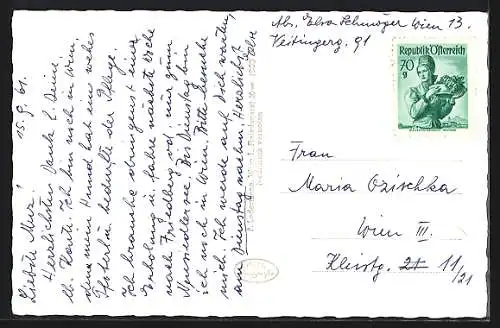 Abs. Elsa Schmöger Wien 13.
Veitingerg. 91
Republik Österreich
70
g
Frau
Maria Ozischka
Wien III.
Kleistg. 21 11/21
15.9.61.
Liebste Mitz!
Herzlichsten Dank f. Deine
lb. Karte. Ich bin noch in Wien.
denn mein Hund hat ein wehes
Pfoterl u. bedurfte der Pflege.
Ich brauche dringenst eine
Erholung u. fahre nächste Woche
nach Friedberg od. nur zum
Neusiedlersee. Bis Dienstag bin
ich noch in Wien. Bitte besuche
mich. Ich werde auf Dich warten,
am Dienstag nachm. Herzlichst